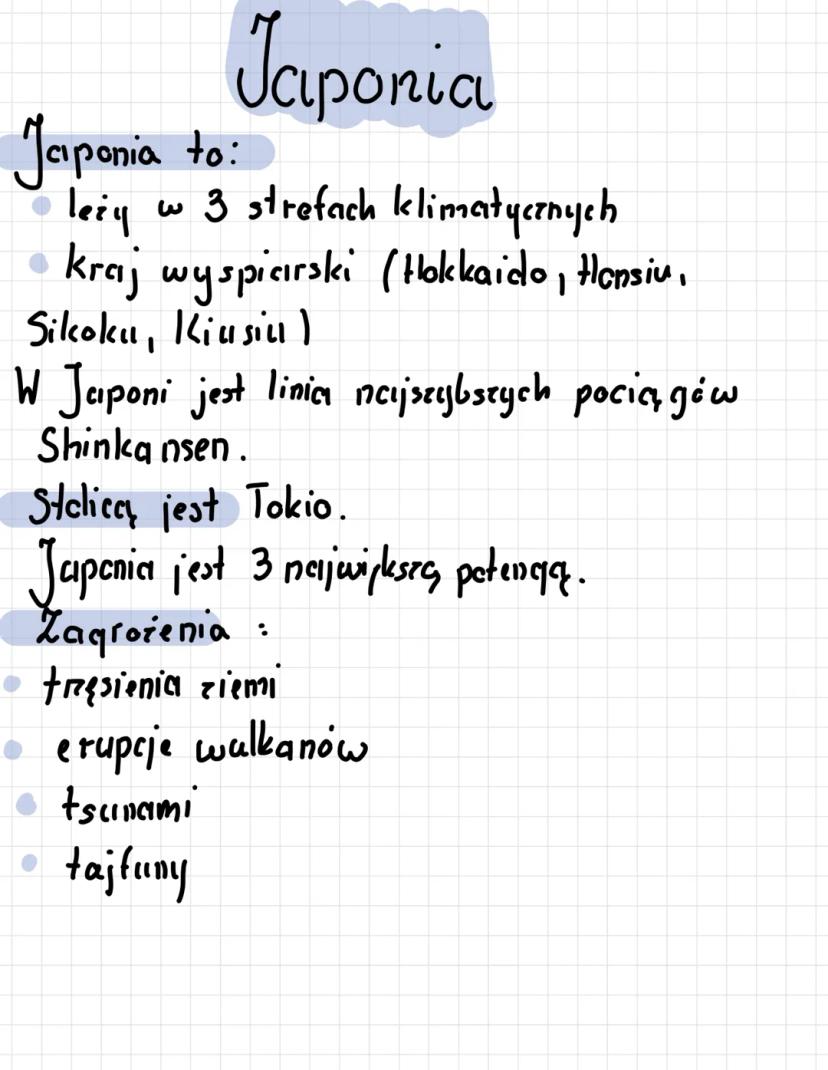 Japonia
Japonia to:
• leży w 3 strefach klimatycznych
• kraj wyspiarski (Hokkaido, Honsiu,
Sikoku, Kiusiu)
W Japoni jest linia najszybszych pociągów
Shinkansen.
Stolicą jest Tokio.
Japonia jest 3 największą potęgą.
Zagrożenia :
• trzęsienia ziemi
• erupcje wulkanów
• tsunami
• tajfuny